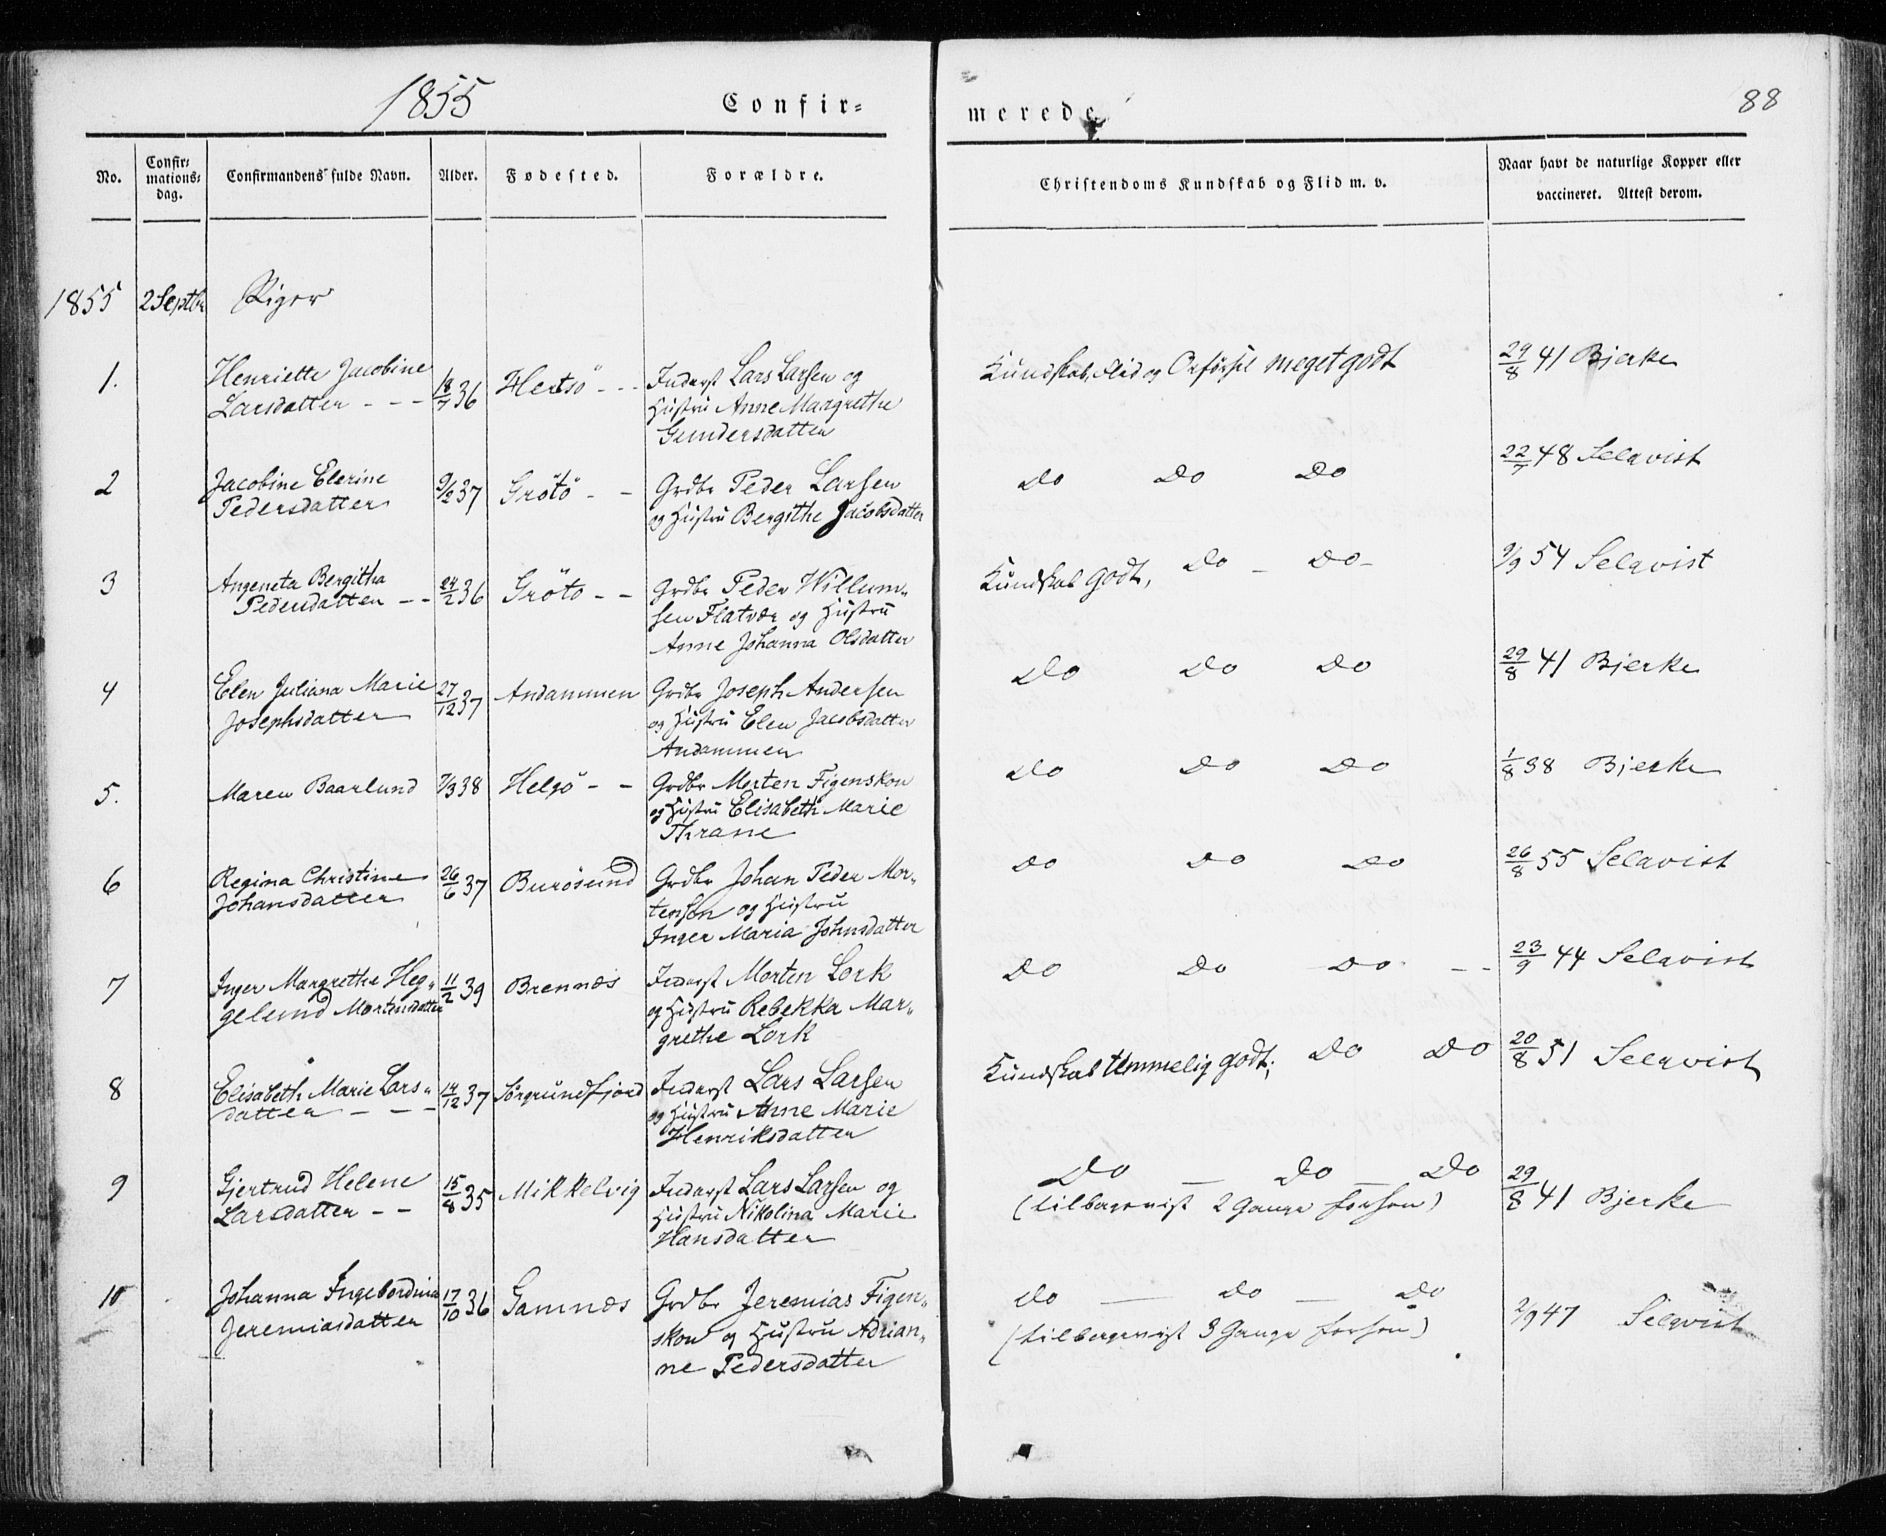 1855
Confir=
merede
88
No.
Confir=
mations=
dag.
Confirmandens fulde Navn.
Alder.
Fødested.
Forældre.
Christendoms Kundskab og Flid m. v.
Naar havt de naturlige Kopper eller
vaccineret. Attest derom.
1855 2 Septbr Piger
1.
Henriette Jacobine
Larsdatter - - -
18/7 36
Hertsö - - -
Inderst Lars Larsen og
Hustru Anne Margrethe
Gundersdatter
Kundskab, Flid og Opförsel meget godt
29/8 41 Bjerke
2
Jacobine Elerine
Pedersdatter
9/2 37
Grötö - -
Grdbr Peder Larsen
og Hustru Bergithe Jacobsdatter
Do Do Do
22/7 48 Selqvist
3
Angeneta Bergitha
Pedersdatter - -
24/2 36
Gröto - -
Grdbr Peder Willum-
sen Flatvær og Hustru
Anne Johanna Olsdatter
Kundskab godt, Do - Do -
9/9 54 Selqvist
4
Elen Juliana Marie
Josephsdatter
27/12 37
Andammen
Grdbr Joseph Andersen
og Hustru Elen Jacobsdatter
Andammen
Do Do Do
29/8 41 Bjerke
5.
Maren Baarlund
7/3 38
Helgö - -
Grdbr Morten Figenskou
og Hustru Elisabeth Marie
Thrane
Do Do Do
1/8 38 Bjerke
6
Regina Christine
Johansdatter
26/6 37
Burösund
Grdbr Johan Peder Mor-
tensen og Hustru
Inger Maria Johnsdatter
Do Do Do
26/8 55 Selqvist
7
Inger Margrethe Heg-
gelund Mortensdatter
11/2 39
Brennæs
Inderst Morten Lork
og Hustru Rebekka Mar-
grethe Lork
Do Do Do - -
23/9 44 Selqvist
8
Elisabeth Marie Lars-
datter - - -
14/12 37
Sörgrundfjord
Inderst Lars Larsen
og Hustru Anne Marie
Henriksdatter
Kundskab temmelig godt; Do Do
20/8 51 Selqvist
9
Gjertrud Helene
Larsdatter - -
15/8 35
Mikkelvig
Inderst Lars Larsen og
Hustru Nikolina Marie
Hansdatter
Do - Do - Do
(tilbageviist 2 Gange forhen)
29/8 41 Bjerke
10
Johanna Ingebordina
Jeremiasdatter
17/10 36
Gamnæs
Grdbr Jeremias Figen-
skou og Hustru Adrian-
ne Pedersdatter
Do - Do - Do
(tilbageviist 3 Gange forhen)
2/9 47 Selqvist